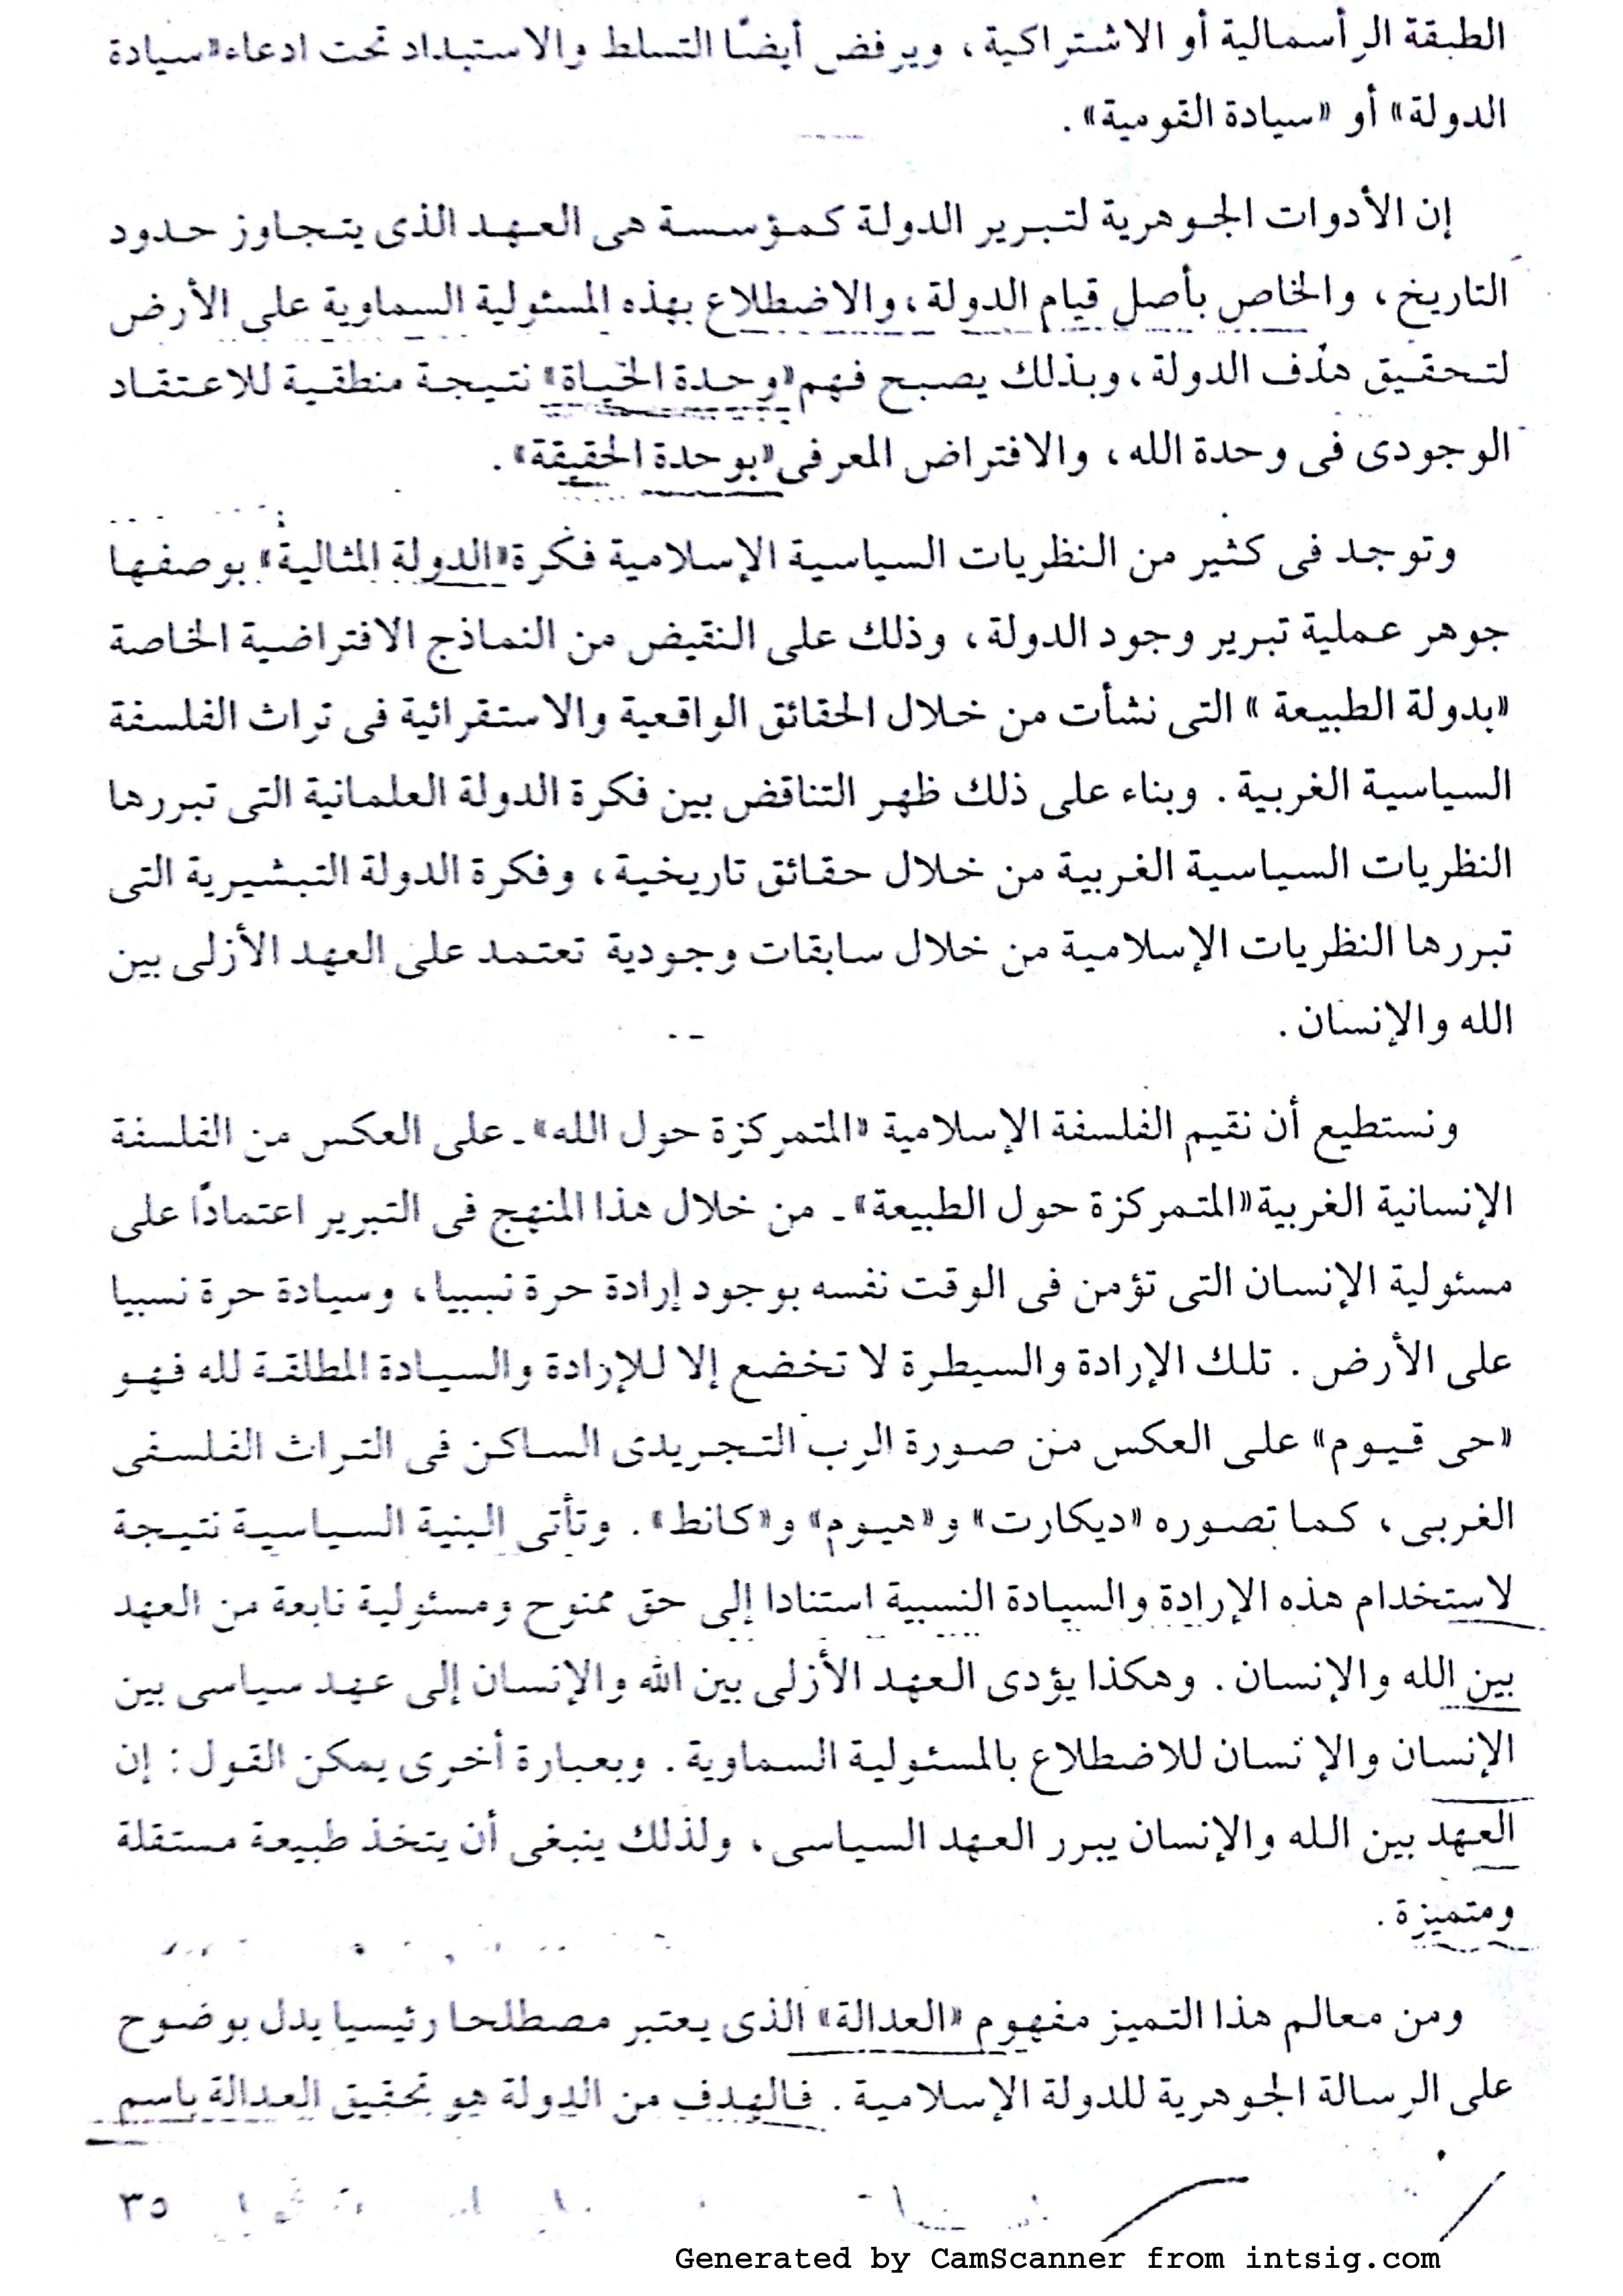 الطبقة الرأسمالية أو الاشتراكية، ويرفض أيضًا التسلط والاستبداد تحت ادعاء «سيادة
الدولة» أو «سيادة القومية».
إن الأدوات الجوهرية لتبرير الدولة كمؤسسة هى العهد الذى يتجاوز حدود
التاريخ، والخاص بأصل قيام الدولة، والاضطلاع بهذه المسئولية السماوية على الأرض
لتحقيق هدف الدولة، وبذلك يصبح فهم «وحدة الحياة» نتيجة منطقية للاعتقاد
الوجودى فى وحدة الله، والافتراض المعرفى «بوحدة الحقيقة».
وتوجد فى كثير من النظريات السياسية الإسلامية فكرة «الدولة المثالية» بوصفها
جوهر عملية تبرير وجود الدولة، وذلك على النقيض من النماذج الافتراضية الخاصة
«بدولة الطبيعة» التى نشأت من خلال الحقائق الواقعية والاستقرائية فى تراث الفلسفة
السياسية الغربية. وبناء على ذلك ظهر التناقض بين فكرة الدولة العلمانية التى تبررها
النظريات السياسية الغربية من خلال حقائق تاريخية، وفكرة الدولة التبشيرية التى
تبررها النظريات الإسلامية من خلال سابقات وجودية تعتمد على العهد الأزلى بين
الله والإنسان.
ونستطيع أن نقيم الفلسفة الإسلامية «المتمركزة حول الله» - على العكس من الفلسفة
الإنسانية الغربية «المتمركزة حول الطبيعة» - من خلال هذا المنهج فى التبرير اعتمادًا على
مسئولية الإنسان التى تؤمن فى الوقت نفسه بوجود إرادة حرة نسبيا، وسيادة حرة نسبيا
على الأرض. تلك الإرادة والسيطرة لا تخضع إلا للإرادة والسيادة المطلقة لله فهو
«حى قيوم» على العكس من صورة الرب التجريدى الساكن فى التراث الفلسفى
الغربى، كما تصوره «ديكارت» و«هيوم» و«كانط». وتأتى البنية السياسية نتيجة
لاستخدام هذه الإرادة والسيادة النسبية استنادا إلى حق ممنوح ومسئولية نابعة من العهد
بين الله والإنسان. وهكذا يؤدى العهد الأزلى بين الله والإنسان إلى عهد سياسى بين
الإنسان والإنسان للاضطلاع بالمسئولية السماوية. وبعبارة أخرى يمكن القول: إن
العهد بين الله والإنسان يبرر العهد السياسى، ولذلك ينبغى أن يتخذ طبيعة مستقلة
ومتميزة.
ومن معالم هذا التميز مفهوم «العدالة» الذى يعتبر مصطلحا رئيسيا يدل بوضوح
على الرسالة الجوهرية للدولة الإسلامية. فالهدف من الدولة هو تحقيق العدالة باسم
٣٥
Generated by CamScanner from intsig.com